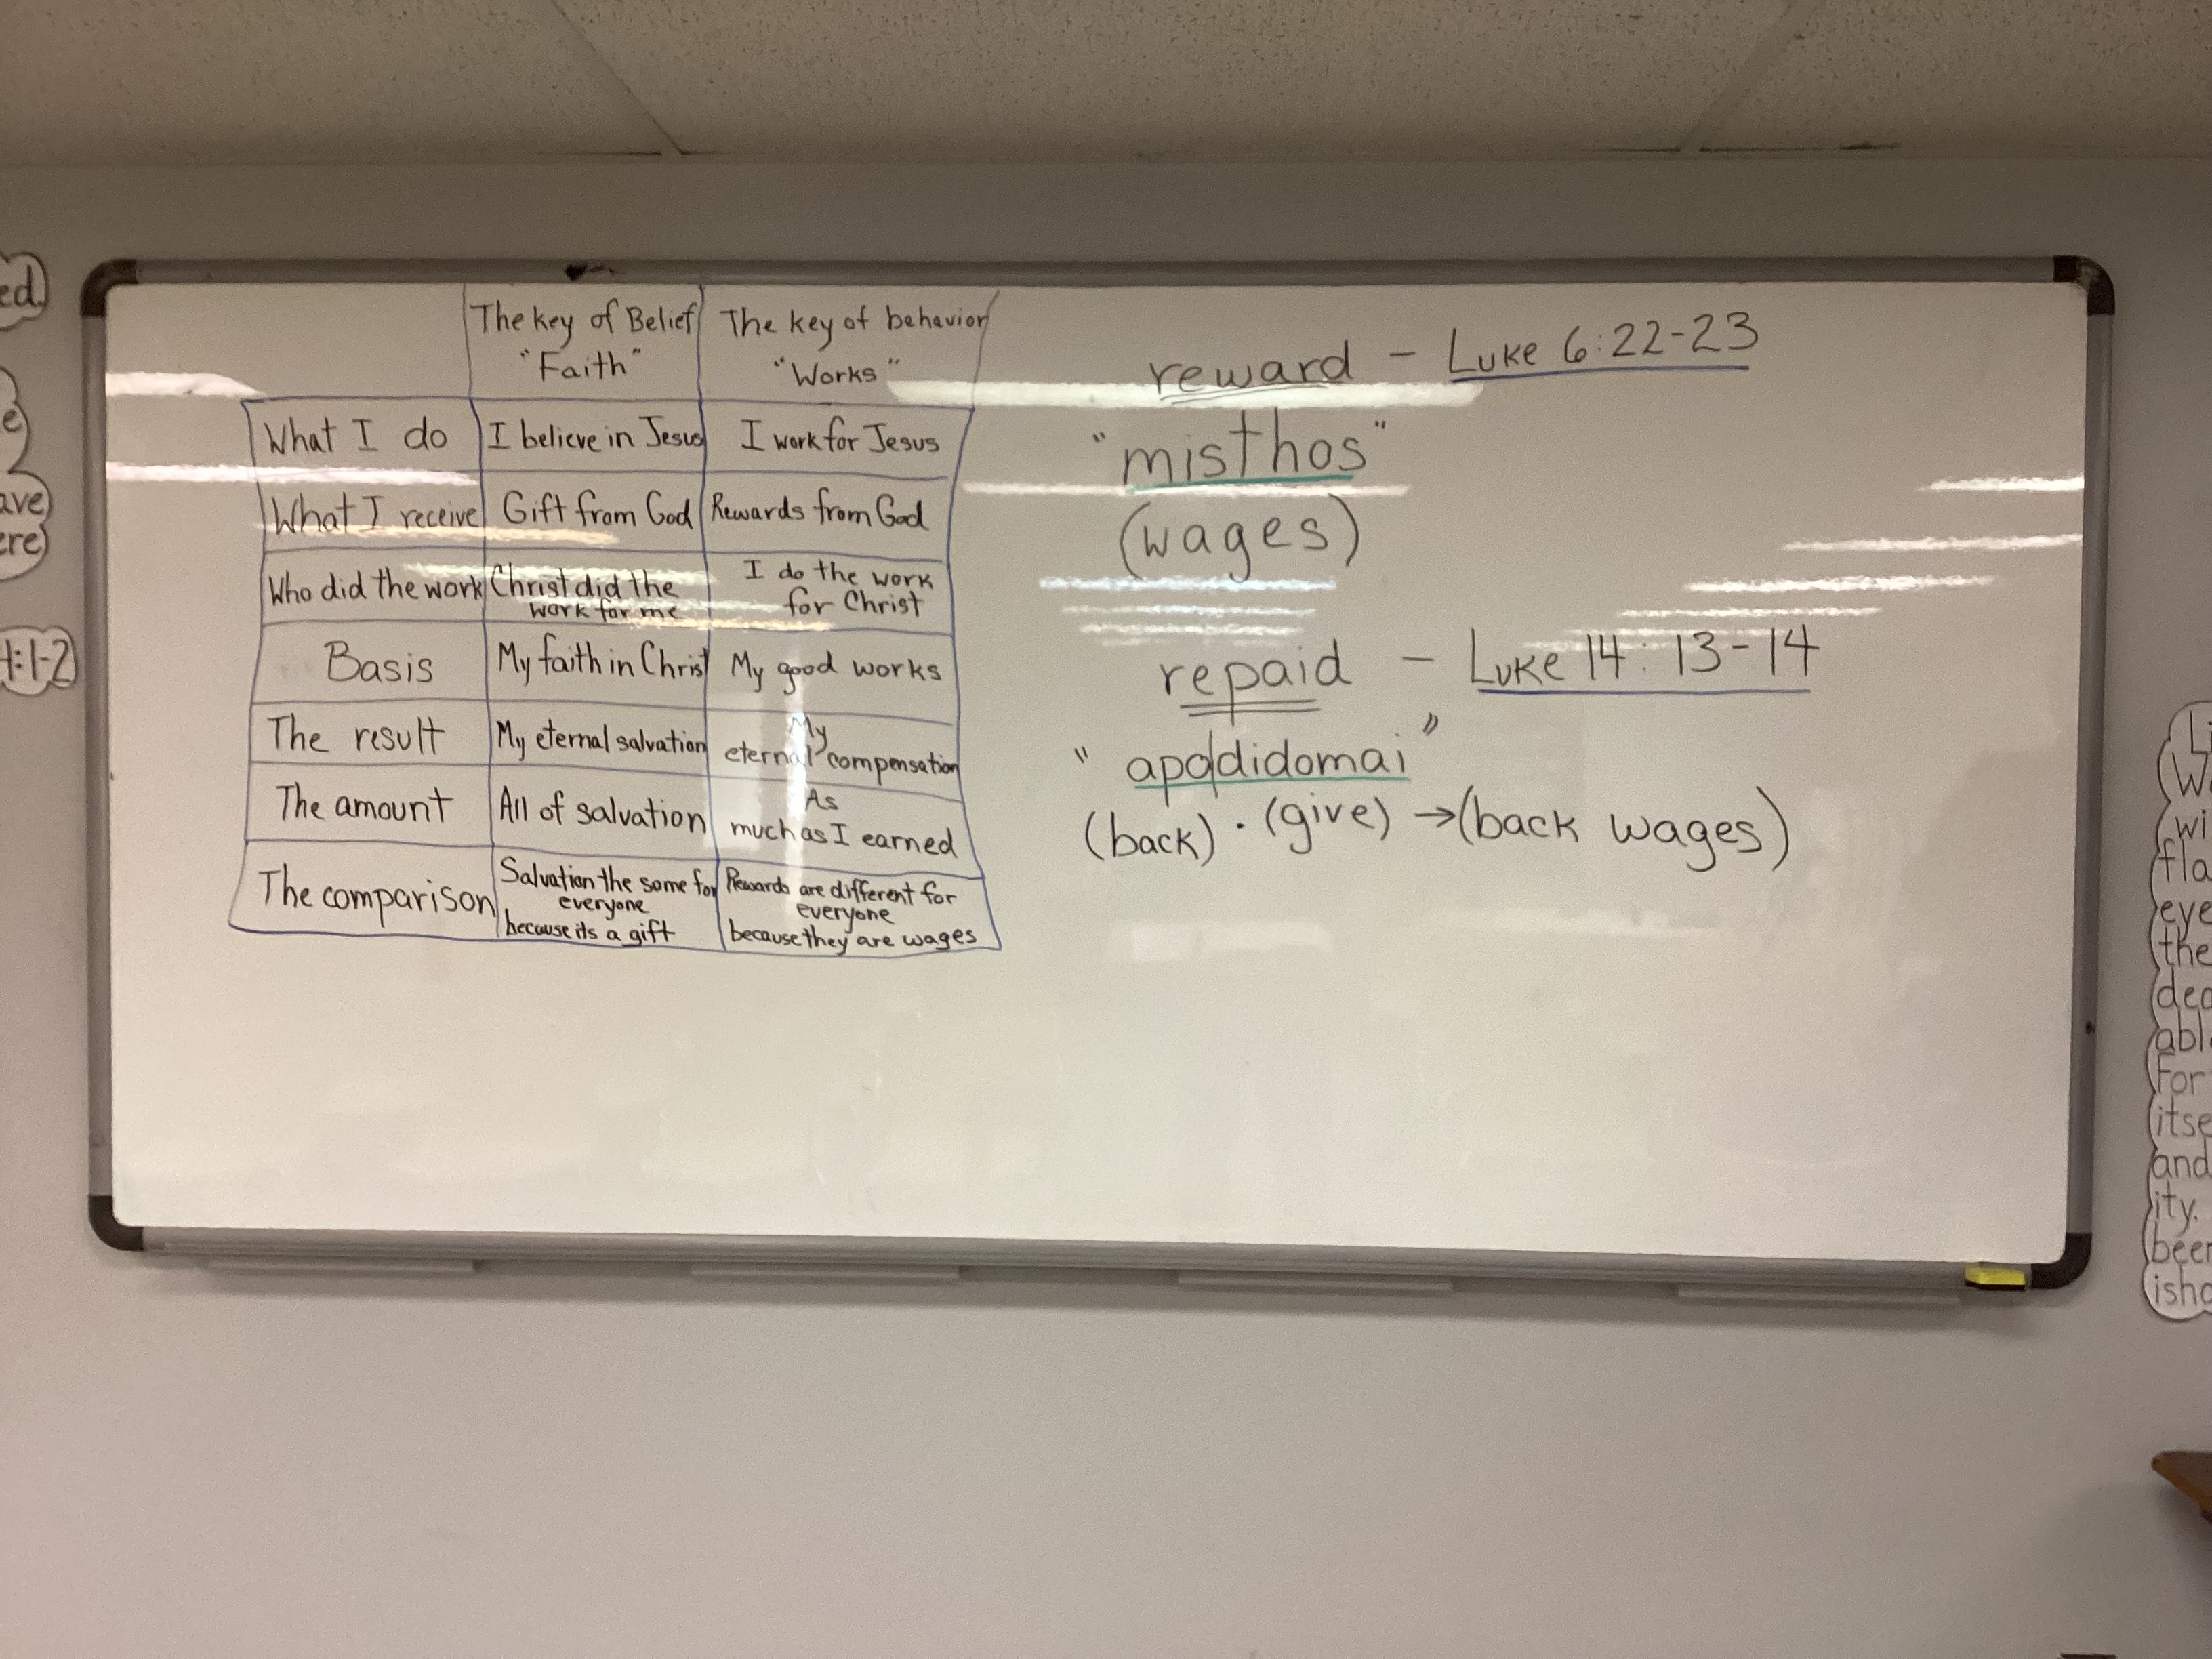 The key of Belief
"Faith"
The key of behavior
"Works"
What I do
I believe in Jesus
I work for Jesus
What I receive
Gift from God
Rewards from God
Who did the work
Christ did the
work for me
I do the work
for Christ
Basis
My faith in Christ
My good works
The result
My eternal salvation
My
eternal compensation
The amount
All of salvation
As
much as I earned
The comparison
Salvation the same for
everyone
because its a gift
Rewards are different for
everyone
because they are wages
reward - Luke 6:22-23
"misthos"
(wages)
repaid - Luke 14:13-14
"apo/didomai"
(back) · (give) → (back wages)
ed.
e
ave
ere)
4:1-2
wi
fla
eye
the
abl
For
itse
and
ity.
been